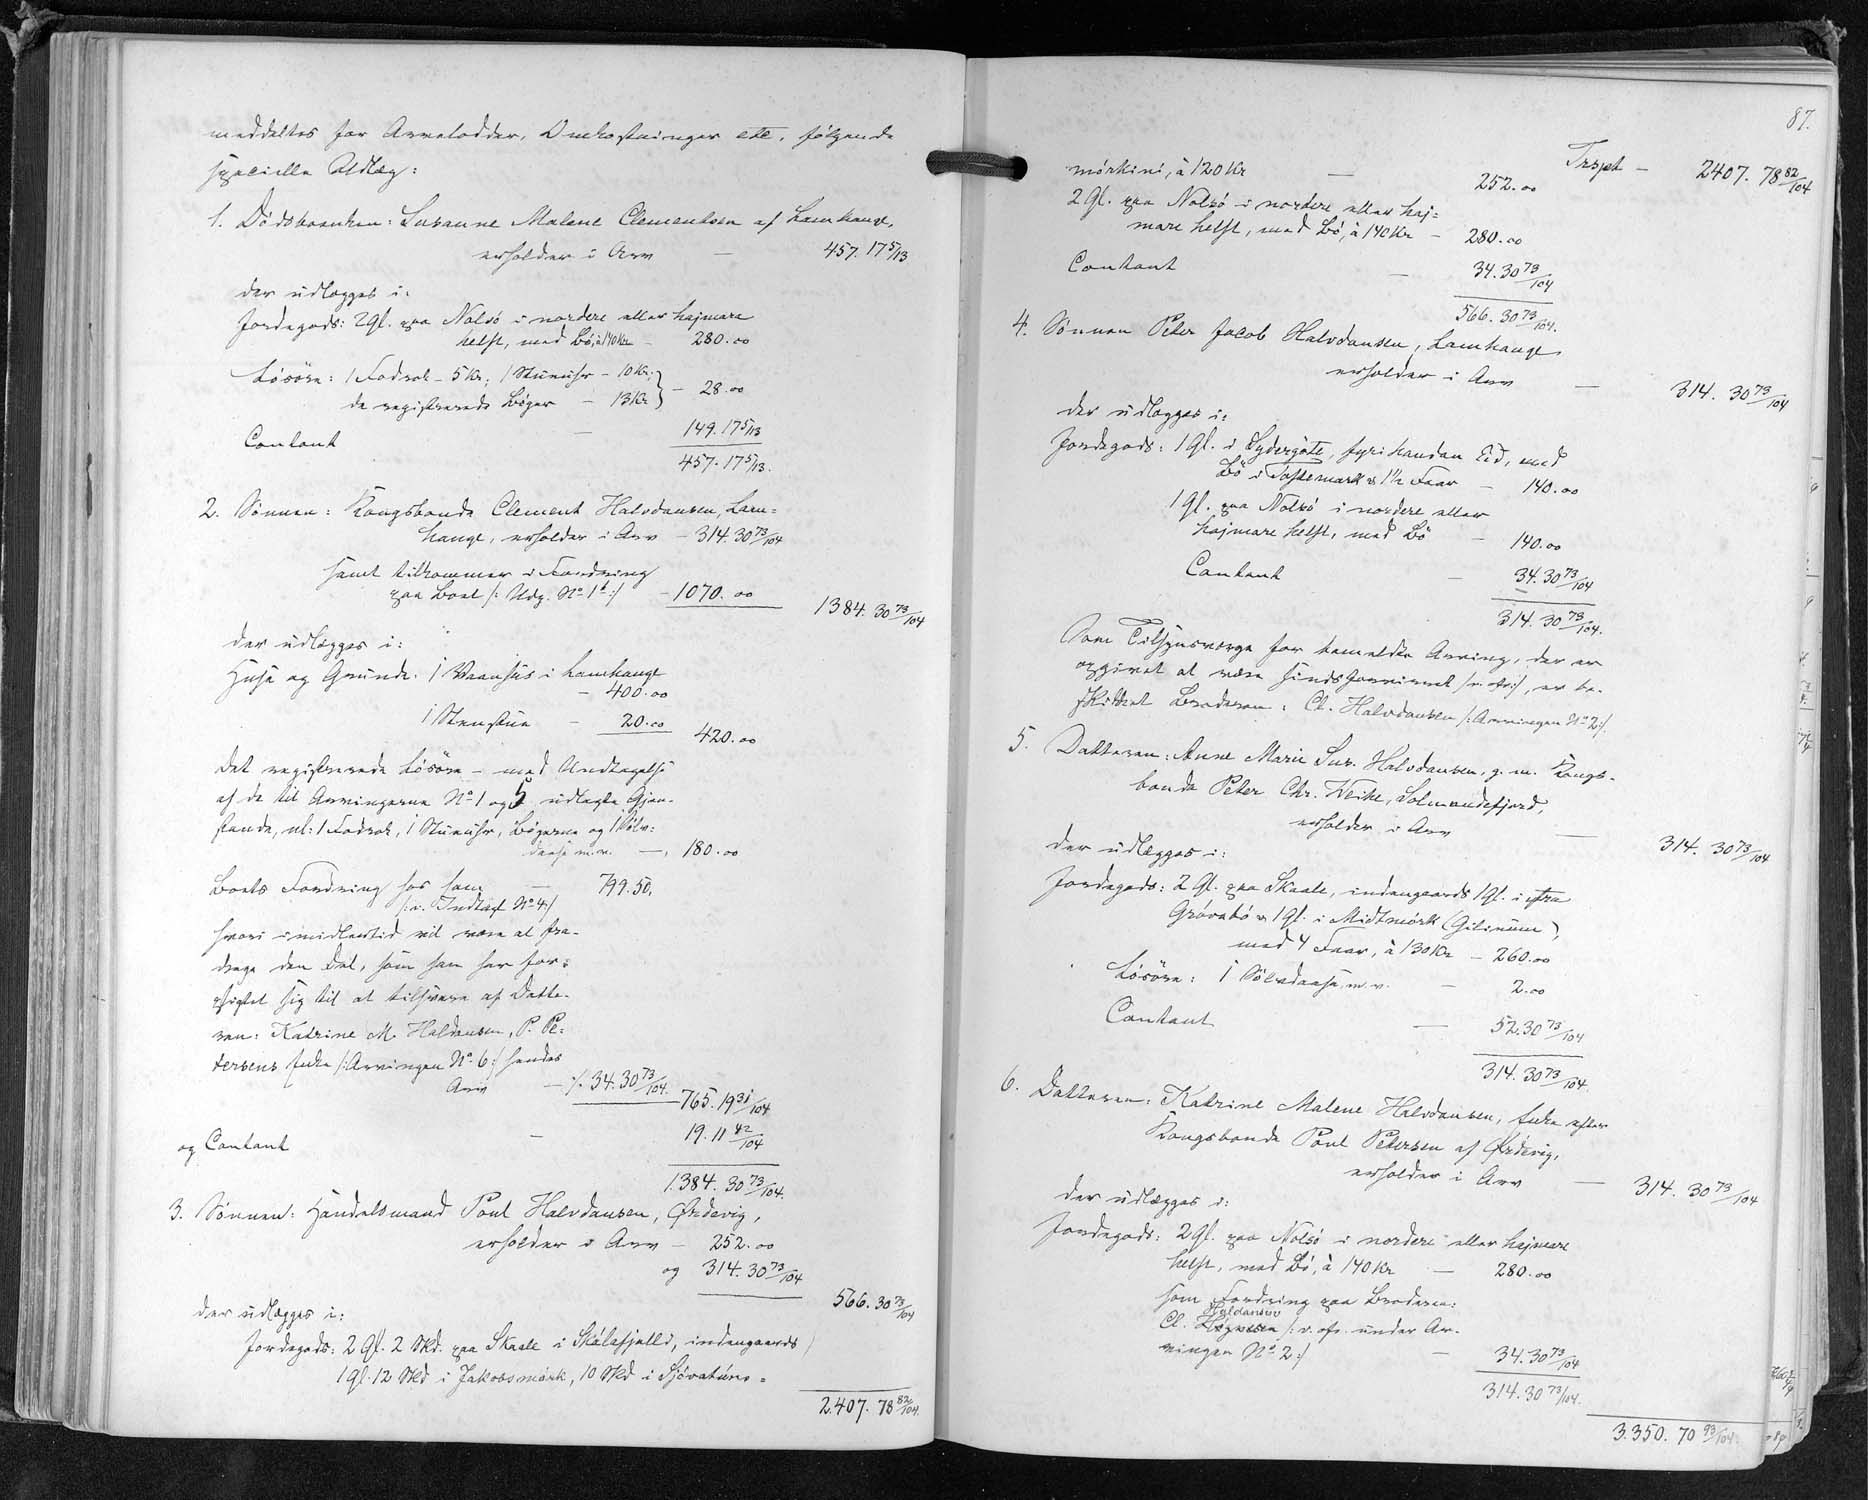 meddeltes for Arvelodder, Omkostninger etc, følgende
specielle Udlæg:
1. Dødsboenken: Susanne Malene Clementsen af Lamhauge,
erholder i Arv — 457. 17 5/13
der udlægges i:
Jordegods: 2 Gl. paa Nolsø i nordere eller hajmare
helft, med Bø, à 140 Kr — 280.00
Løsöre: 1 Foderok – 5 Kr; 1 Stueuhr – 10 Kr;
de registrerede Bøger – 13 Kr } – 28.00
Contant — 149. 17 5/13
457. 17 5/13.
2. Sønnen: Kongsbonde Clement Halvdansen, Lam=
hauge, erholder i Arv – 314. 30 73/104
samt tilkommer i Fordring
paa Boet /: Udg. No 1 b :/ – 1070.00
1384. 30 73/104
der udlægges i:
Huse og Grunde: 1 Vaanhus i Lamhauge
– 400.00
1 Stenstue – 20.00
420.00
Det registrerede Løsöre – med Undtagelse
af de til Arvingerne No 1 og 5 udlagte Gjen-
stande, nl: 1 Foderok, 1 Stueuhr, Bøgerne og 1 Sølv=
daase m.v. —, 180.00
Boets Fordring hos ham — 799.50.
/: v. Indtægt No 4 :/
hvori imidlertid vil være at fra-
drage den Del, som han har for=
pligtet sig til at tilsvare af Datte-
ren: Katrine M. Haldansen, P. Pe=
tersens Enke /: Arvingen No 6 :/ hendes
Arv — ÷ 34. 30 73/104.
765. 19 31/104
og Contant — 19. 11 42/104
1.384. 30 73/104.
3. Sønnen: Handelsmand Poul Halvdansen, Ørdevig,
erholder i Arv – 252.00
og 314. 30 73/104
566. 30 73/104
der udlægges i:
Jordegods: 2 Gl. 2 Skd. paa Skaale i Skálafjalli, indengaards
1 Gl. 12 Skd i Jakobsmørk, 10 Skd i Sjóvatúns=
2.407. 78 82/104.
87.
Trspt – 2407. 78 82/104
mörkini, à 120 Kr — 252.00
2 Gl. paa Nolsø i nordere eller haj=
mare helft, med Bø, à 140 Kr – 280.00
Contant — 34. 30 73/104
566. 30 73/104.
4. Sønnen Peter Jacob Halvdansen, Lamhauge,
erholder i Arv — 314. 30 73/104
der udlægges i:
Jordegods: 1 Gl. i Sydergöte, fyri handan Eid, med
Bø i Toftemark & 1½ Faar – 140.00
1 Gl. paa Nolsø i nordere eller
hajmare helft, med Bø – 140.00
Contant — 34. 30 73/104
314. 30 73/104.
Som Tilsynsværge for bemeldte Arving, der er
opgivet at være sindsforvirret /: v. ofr :/, er be-
skikket Broderen: Cl. Halvdansen /: Arvingen No 2 :/.
5. Datteren: Anne Marie Sus. Halvdansen, g. m. Kongs-
bonde Peter Chr. Weihe, Solmundefjord,
erholder i Arv — 314. 30 73/104
der udlægges i:
Jordegods: 2 Gl. paa Skaale, indengaards 1 Gl. i ytra
Gróvabö & 1 Gl. i Midtmörk (Gilinum),
med 4 Faar, à 130 Kr – 260.00
Løsöre: 1 Sølvdaase m. v. – 2.00
Contant — 52. 30 73/104
314. 30 73/104.
6. Datteren: Katrine Malene Halvdansen, Enke efter
Kongsbonde Poul Petersen af Ørdevig,
erholder i Arv — 314. 30 73/104
der udlægges i:
Jordegods: 2 Gl. paa Nolsø i nordere eller hajmare
helft, med Bø, à 140 Kr — 280.00
som Fordring paa Broderen:
Haldansen
Cl. /: v. ofr. under Ar-
vingen No 2 :/ — 34. 30 73/104
314. 30 73/104.
3.350. 70 93/104.